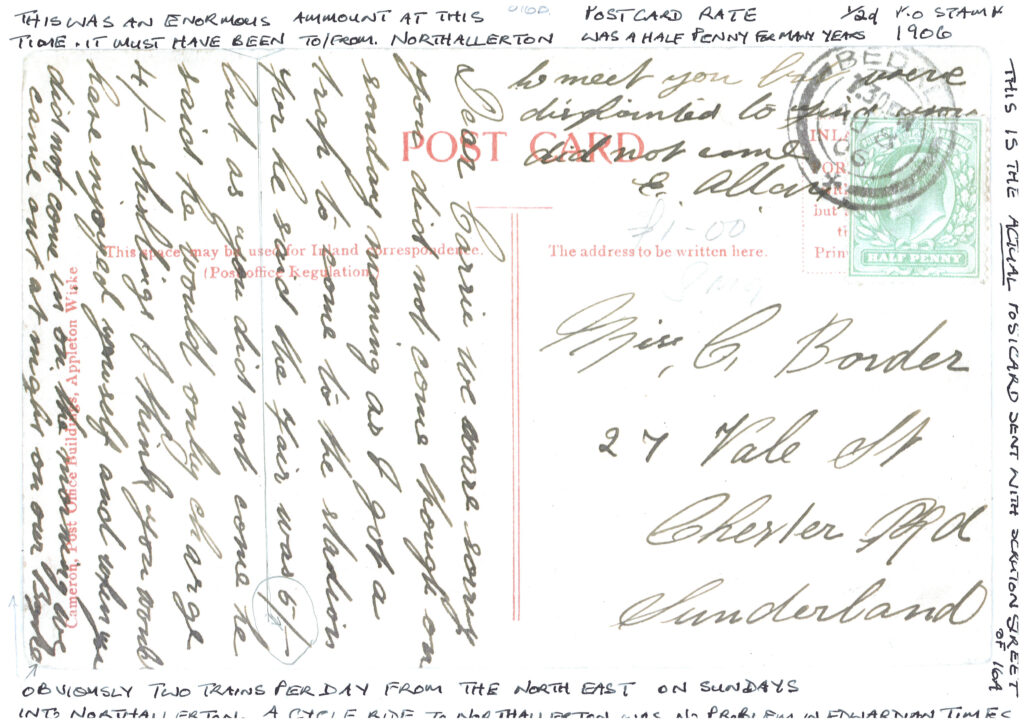 THIS WAS AN ENORMOUS AMMOUNT AT THIS
TIME. IT MUST HAVE BEEN TO/FROM. NORTHALLERTON
POSTCARD RATE
WAS A HALF PENNY FOR MANY YEARS
1/2d P.O STAMP
1906
THIS IS THE ACTUAL POSTCARD SENT WITH SCRUTON STREET
OF 16A
POST CARD
This space may be used for Inland correspondence.
(Post office Regulation)
The address to be written here.
INLA
FOR
but
Prin
BED
HALF PENNY
£1-00
Cameron, Post Office Buildings, Appleton Wiske
Dear Carrie we ware sorry
you did not come though on
sonday morning as I got a
trap to come to the stadion
for he said the fair was 6/-
but as you did not come he
said he would only charge
4/- shillings I think you would
have injoyed yourself and when you
did not come in on the morning we
came out at night on our
to meet you but were
disapointed to find you
did not come
E. Allan
Miss, C. Border
27 Vale St
Chester Rd
Sunderland
OBVIOUSLY TWO TRAINS PER DAY FROM THE NORTH EAST ON SUNDAYS
INTO NORTHALLERTON. A CYCLE RIDE TO NORTHALLERTON WAS NO PROBLEM IN EDWARDIAN TIMES